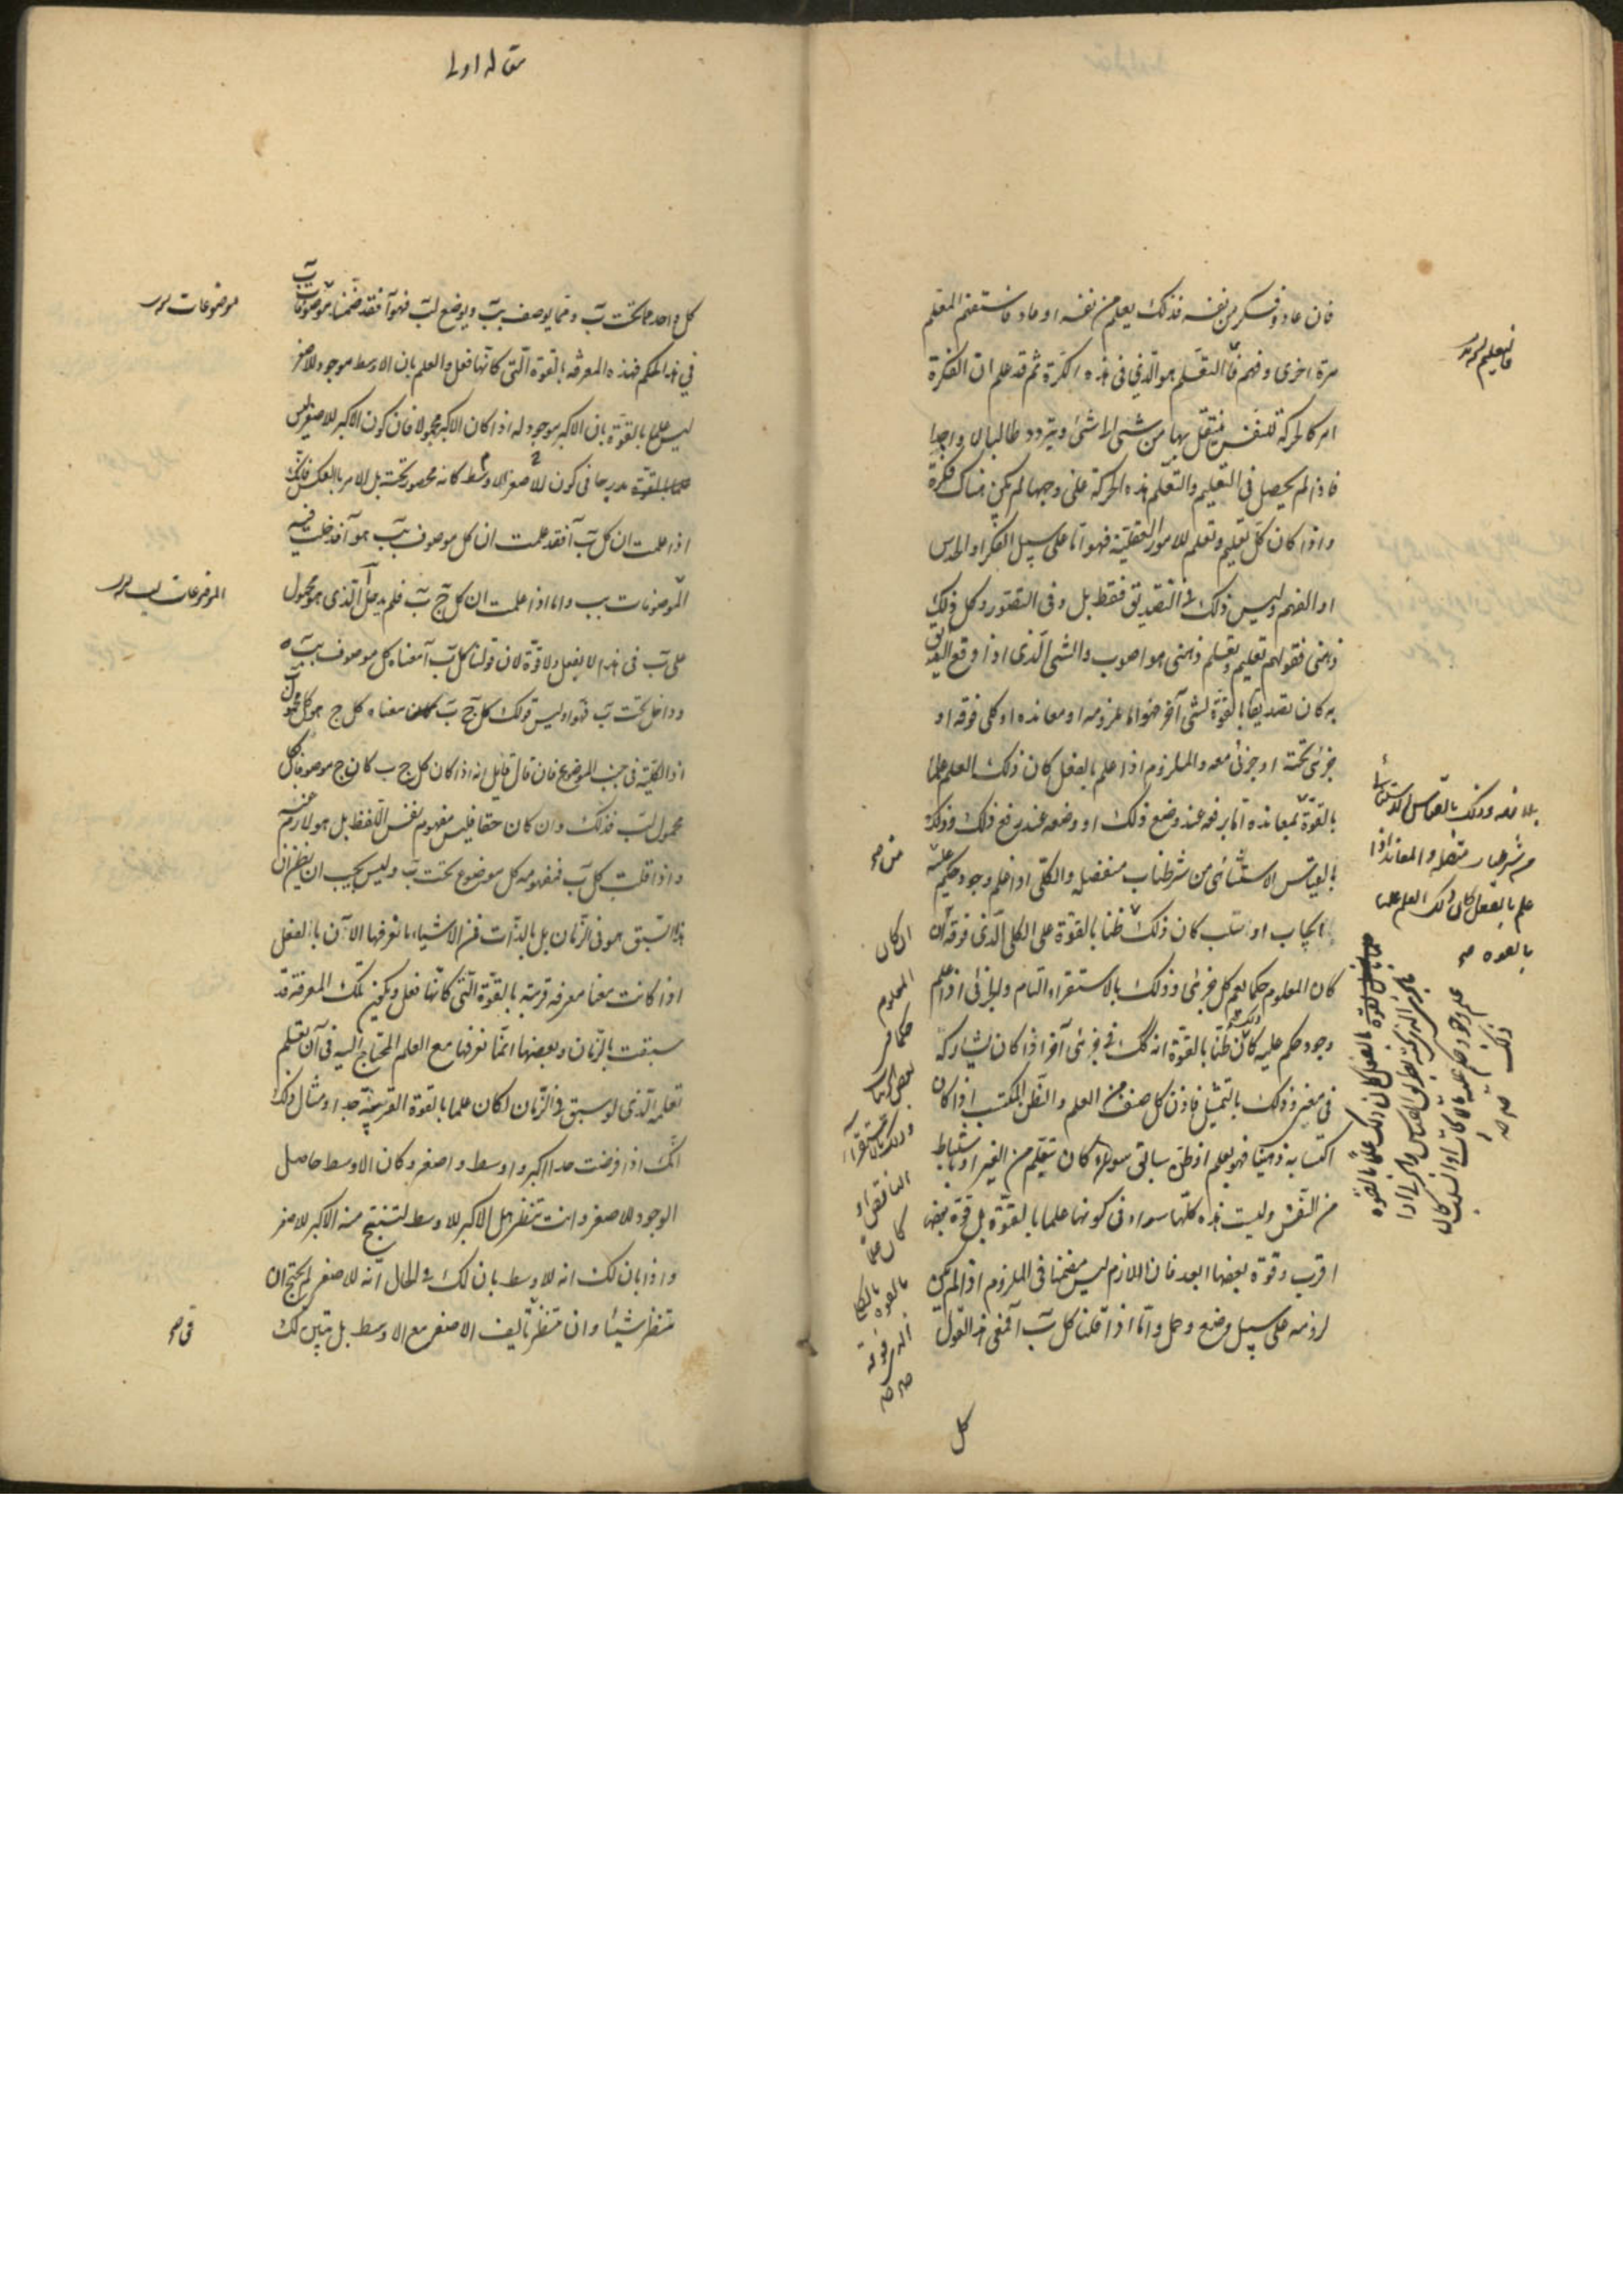 فان عاد وفكر من نفسه فذلك يعلم من نفسه او عاد فاستفهم المعلم
مرة اخرى وفهم فالتعلم هو الذي في هذه الكرة ثم قد علم ان الفكرة
امر كالحركة للنفس ينتقل بها من شئ الى شئ ويتردد طالبا لا واجدا
فاذا لم يحصل في التعليم والتعلم هذه الحركة على وجهها لم يكن هناك فكرة
واذا كان كل تعليم وتعلم للامور العقلية فهو اما على سبيل الفكر او الحدس
او الفهم وليس ذلك في التصديق فقط بل وفي التصور وكل ذلك
ذهني فقولهم تعليم وتعلم ذهني هو اصوب والشئ الذي اذا وقع التصديق
به كان تصديقا بالقوة لشئ آخر فهو اما ملزومه او معانده او كلي فوقه او
جزئي تحته او جزئي معه والملزوم اذا علم بالفعل كان ذلك العلم علما
بالقوة بمعانده اما برفعه عند وضع ذلك او وضعه عند رفع ذلك وذلك
بالقياس الاستثنائي من شرطيات منفصلة والكلي اذا علم وجود حكم عليه
ايجاب او سلب كان ذلك ظنا بالقوة على الكلي الذي فوقه ان
كان المعلوم حكما يعم كل جزئي وذلك بالاستقراء التام والجزئي اذا علم
وجود حكم عليه كان ذلك ظنا بالقوة انه كك في جزئي آخر اذا كان يشاركه
في معنى وذلك بالتمثيل فاذن كل صنف من العلم والظن المكتسب اذا كان
اكتسابه ذهنيا فهو بعلم او ظن سابق سواء كان بتعلم من الغير او باستنباط
من النفس وليست هذه كلها سواء في كونها علما بالقوة بل قوة بعضها
اقرب وقوة بعضها ابعد فان اللازم ليس مضمنا في الملزوم اذا لم يكن
لزومه على سبيل وضع وحمل واما اذا قلنا كل ب آ فمعنى هذا القول
كل
فالتعليم
بلازمه وذلك بالقياس الاستثنائي
من شرطيات متصله والمعاند اذا
علم بالفعل كان ذلك العلم علما
بالقوه صح
ان كان
المعلوم
حكما في
بعض الجزئيات
وذلك بالاستقراء
الناقص او
كان علما
بالقوه بالكلي
الذي فوقه
مقاله اولى
كل واحد مما تحت ب ومما يوصف بب ويوضع لب فهو آ فقد ضمنا موصوفات ب
في هذا الحكم فهذه المعرفة بالقوة التي كانها فعل والعلم بان الاوسط موجود للاصغر
ليس علما بالقوة بان الاكبر موجود له اذا كان الاكبر مجهولا فان كون الاكبر للاصغر ليس
علما بالقوة مدرجا في كون للاصغر الاوسط كانه محصور تحته بل الامر بالعكس فانك
اذا علمت ان كل ب آ فقد علمت ان كل موصوف بب هو آ فدخلت فيه
الموصوفات بب واما اذا علمت ان كل ج ب فلم يدخل آ الذي هو محمول
على ب في هذا لا بفعل ولا قوة لان قولنا كل ب آ معناه كل موصوف بب
وداخل تحت ب فهو آ وليس قولك كل ج ب معناه كل ج هو كل محمول ب
اذ الكلية في جنب الموضوع فان قال قايل انه اذا كان كل ج ب كان ج موصوفا بكل
محمول لب فذلك وان كان حقا فليس مفهوم نفس اللفظ بل هو لازم عنه
واذا قلت كل ب فمفهومه كل موضوع تحت ب وليس يجب ان يظن ان
هذا السبق هو في الزمان بل بالذات فمن الاشياء ما نعرفها الآن بالفعل
اذا كانت معنا معرفة قريبة بالقوة التي كانها فعل ويكون تلك المعرفة قد
سبقت بالزمان وبعضها انما نعرفها مع العلم المحتاج اليه في آن تعلم
تعلمه الذي لو سبق في الزمان لكان علما بالقوة القريبة جدا ومثال ذلك
انك اذا فرضت حدا اكبر واوسط واصغر وكان الاوسط حاصل
الوجود للاصغر وانت تنظر هل الاكبر للاوسط لتنتج منه الاكبر للاصغر
واذا بان لك انه للاوسط بان لك في الحال انه للاصغر لم يحتج ان
تنظر شيئا وان تنظر تأليف الاصغر مع الاوسط بل تبين لك
موضوعات
الموضوعات لب
في صح